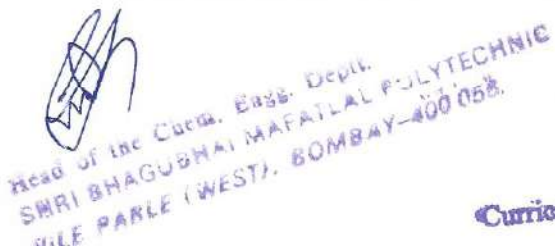 Head of the Chem. Engg. Deptt.
SHRI BHAGUBHAI MAFATLAL POLYTECHNIC
VILE PARLE (WEST), BOMBAY-400 056.
Curric